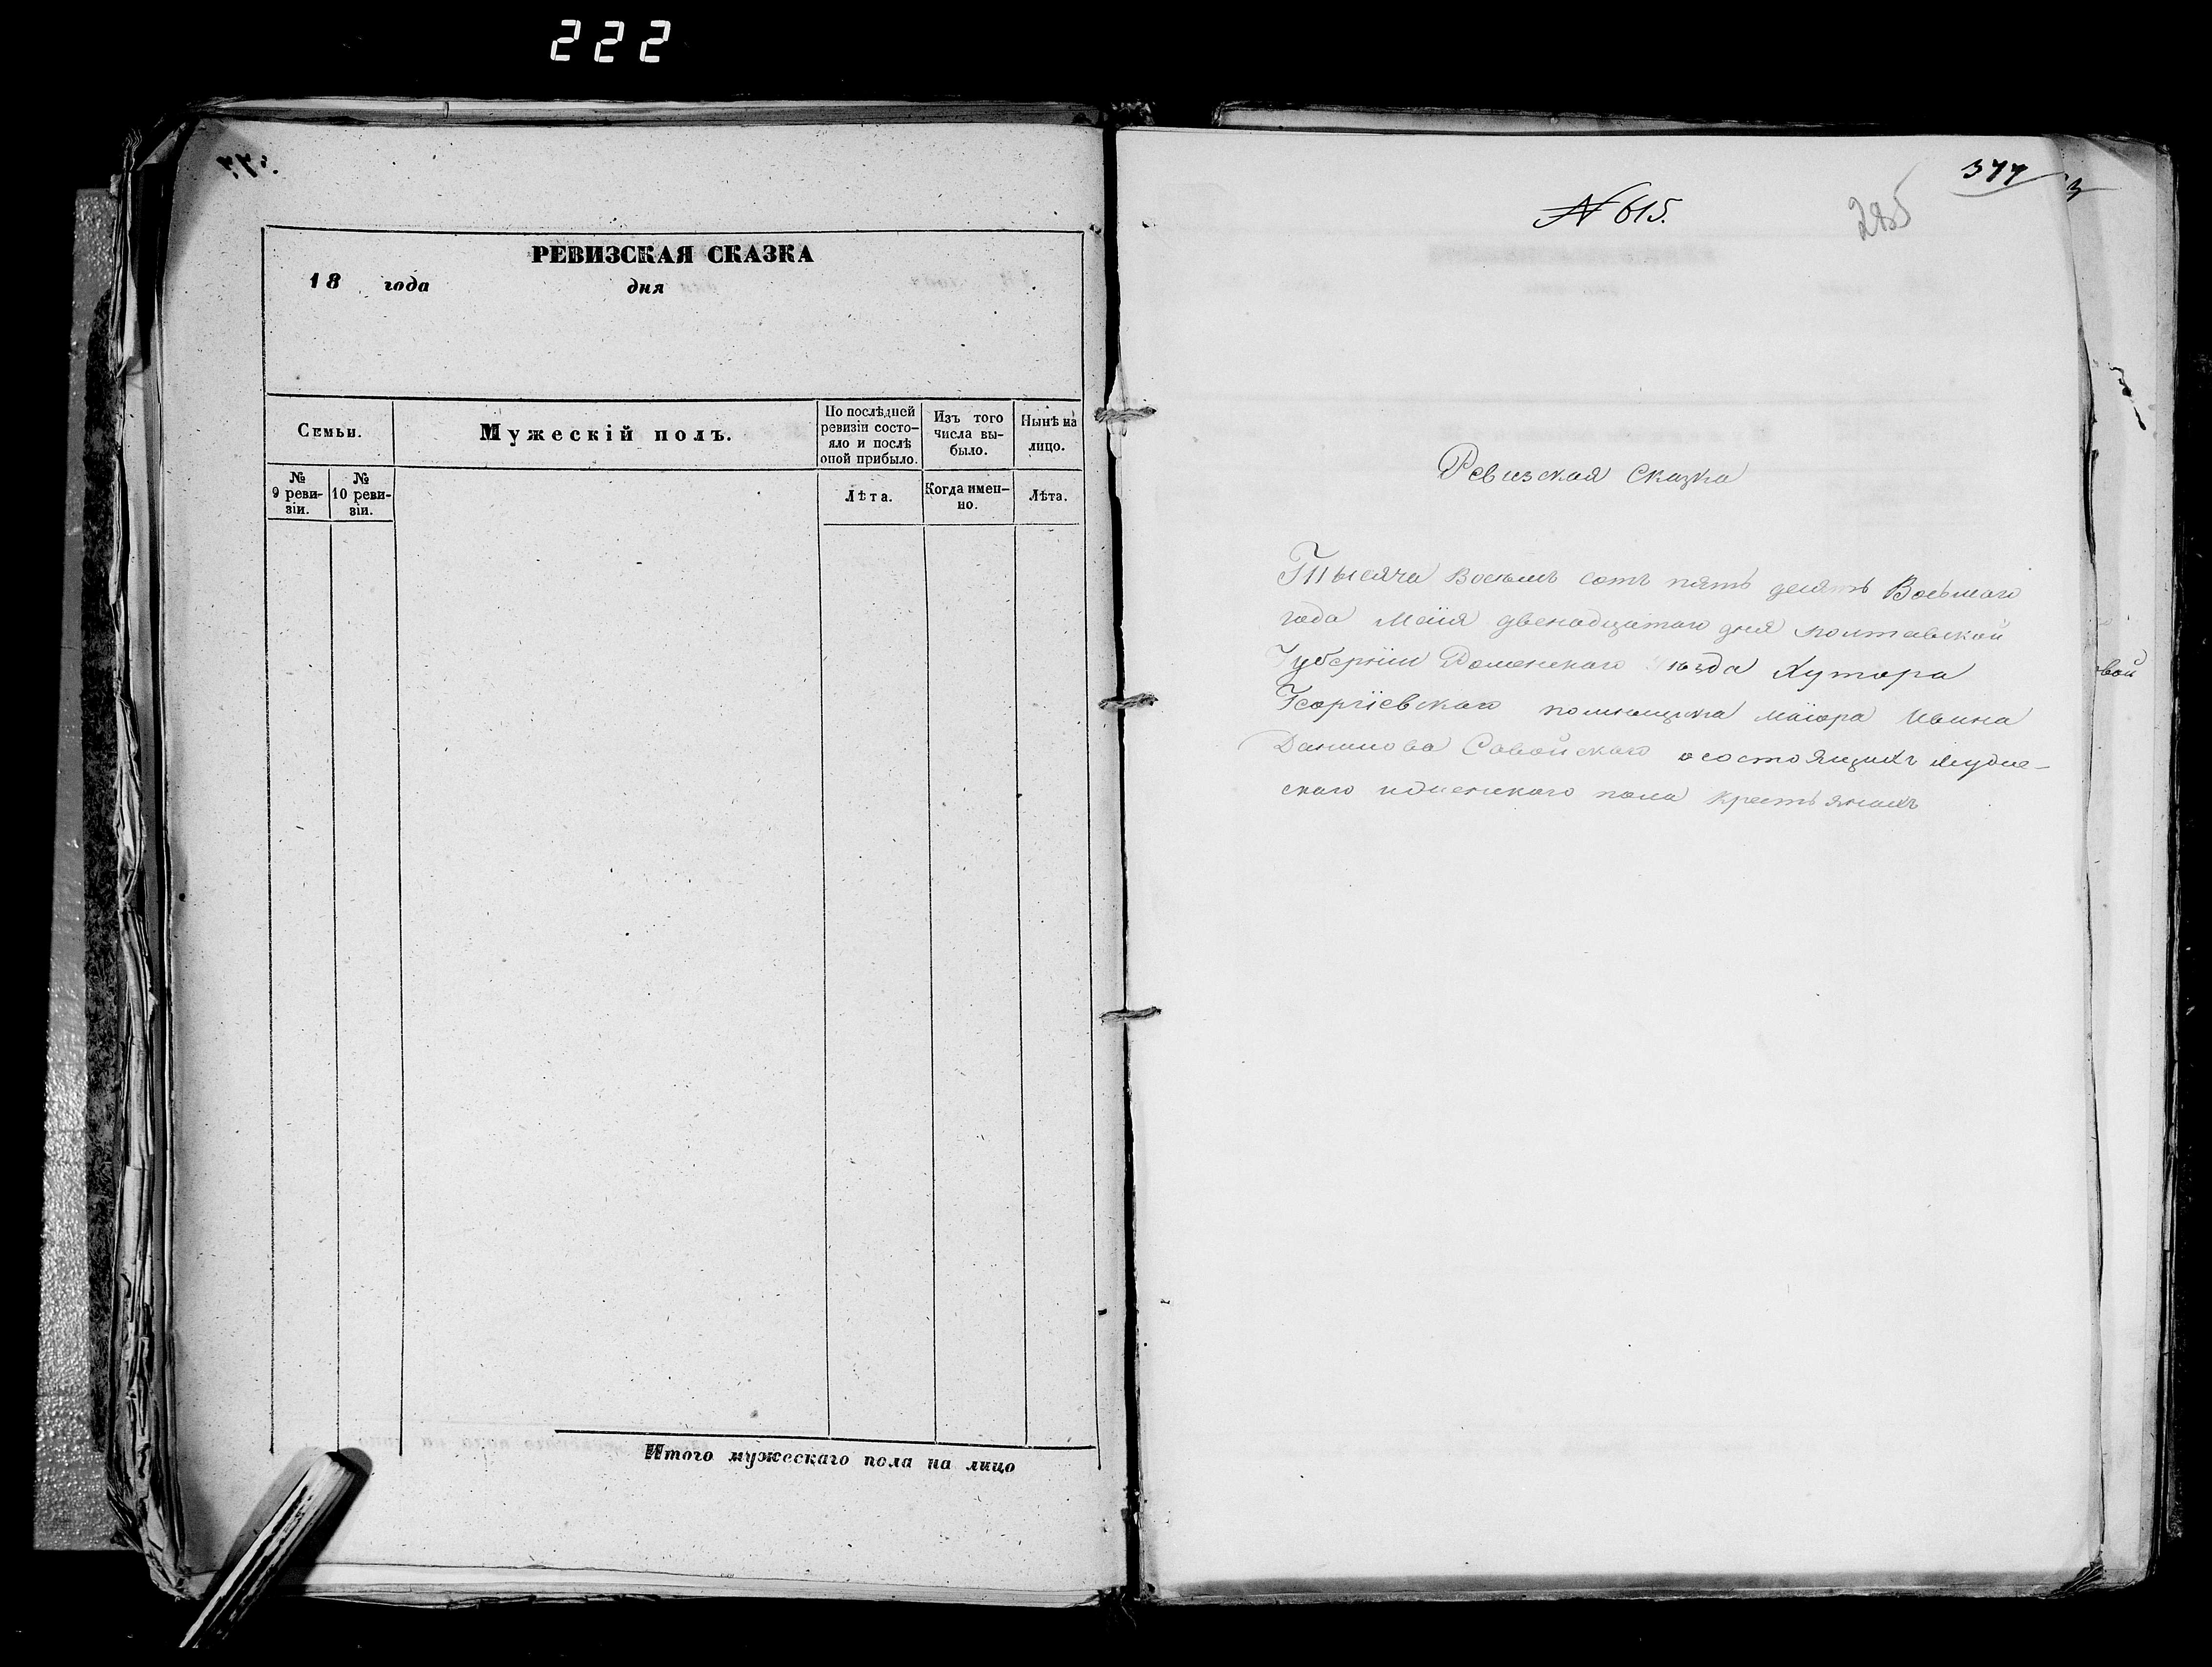 222
РЕВИЗСКАЯ СКАЗКА
18 года дня
Семьи.
Мужескій полъ.
По послѣдней ревизіи состо-
яло и послѣ оной прибыло.
Изъ того числа вы-
было.
Нынѣ на лицо.
№ 9 реви-
зіи.
№ 10 реви-
зіи.
Лѣта.
Когда имен-
но.
Лѣта.
Итого мужескаго пола на лицо
377
285
№ 615.
Ревизская Сказка
Тысяча Восемь сотъ пять десять Восьмаго
года Маія двенадцатаго дня полтавской
Губерніи Роменскаго Уѣзда Хутора
Георгіевскаго помещика маіора Ивана
Данилова Савойскаго осостоящихъ мужес-
скаго иженскаго пола крестьянахъ
вой